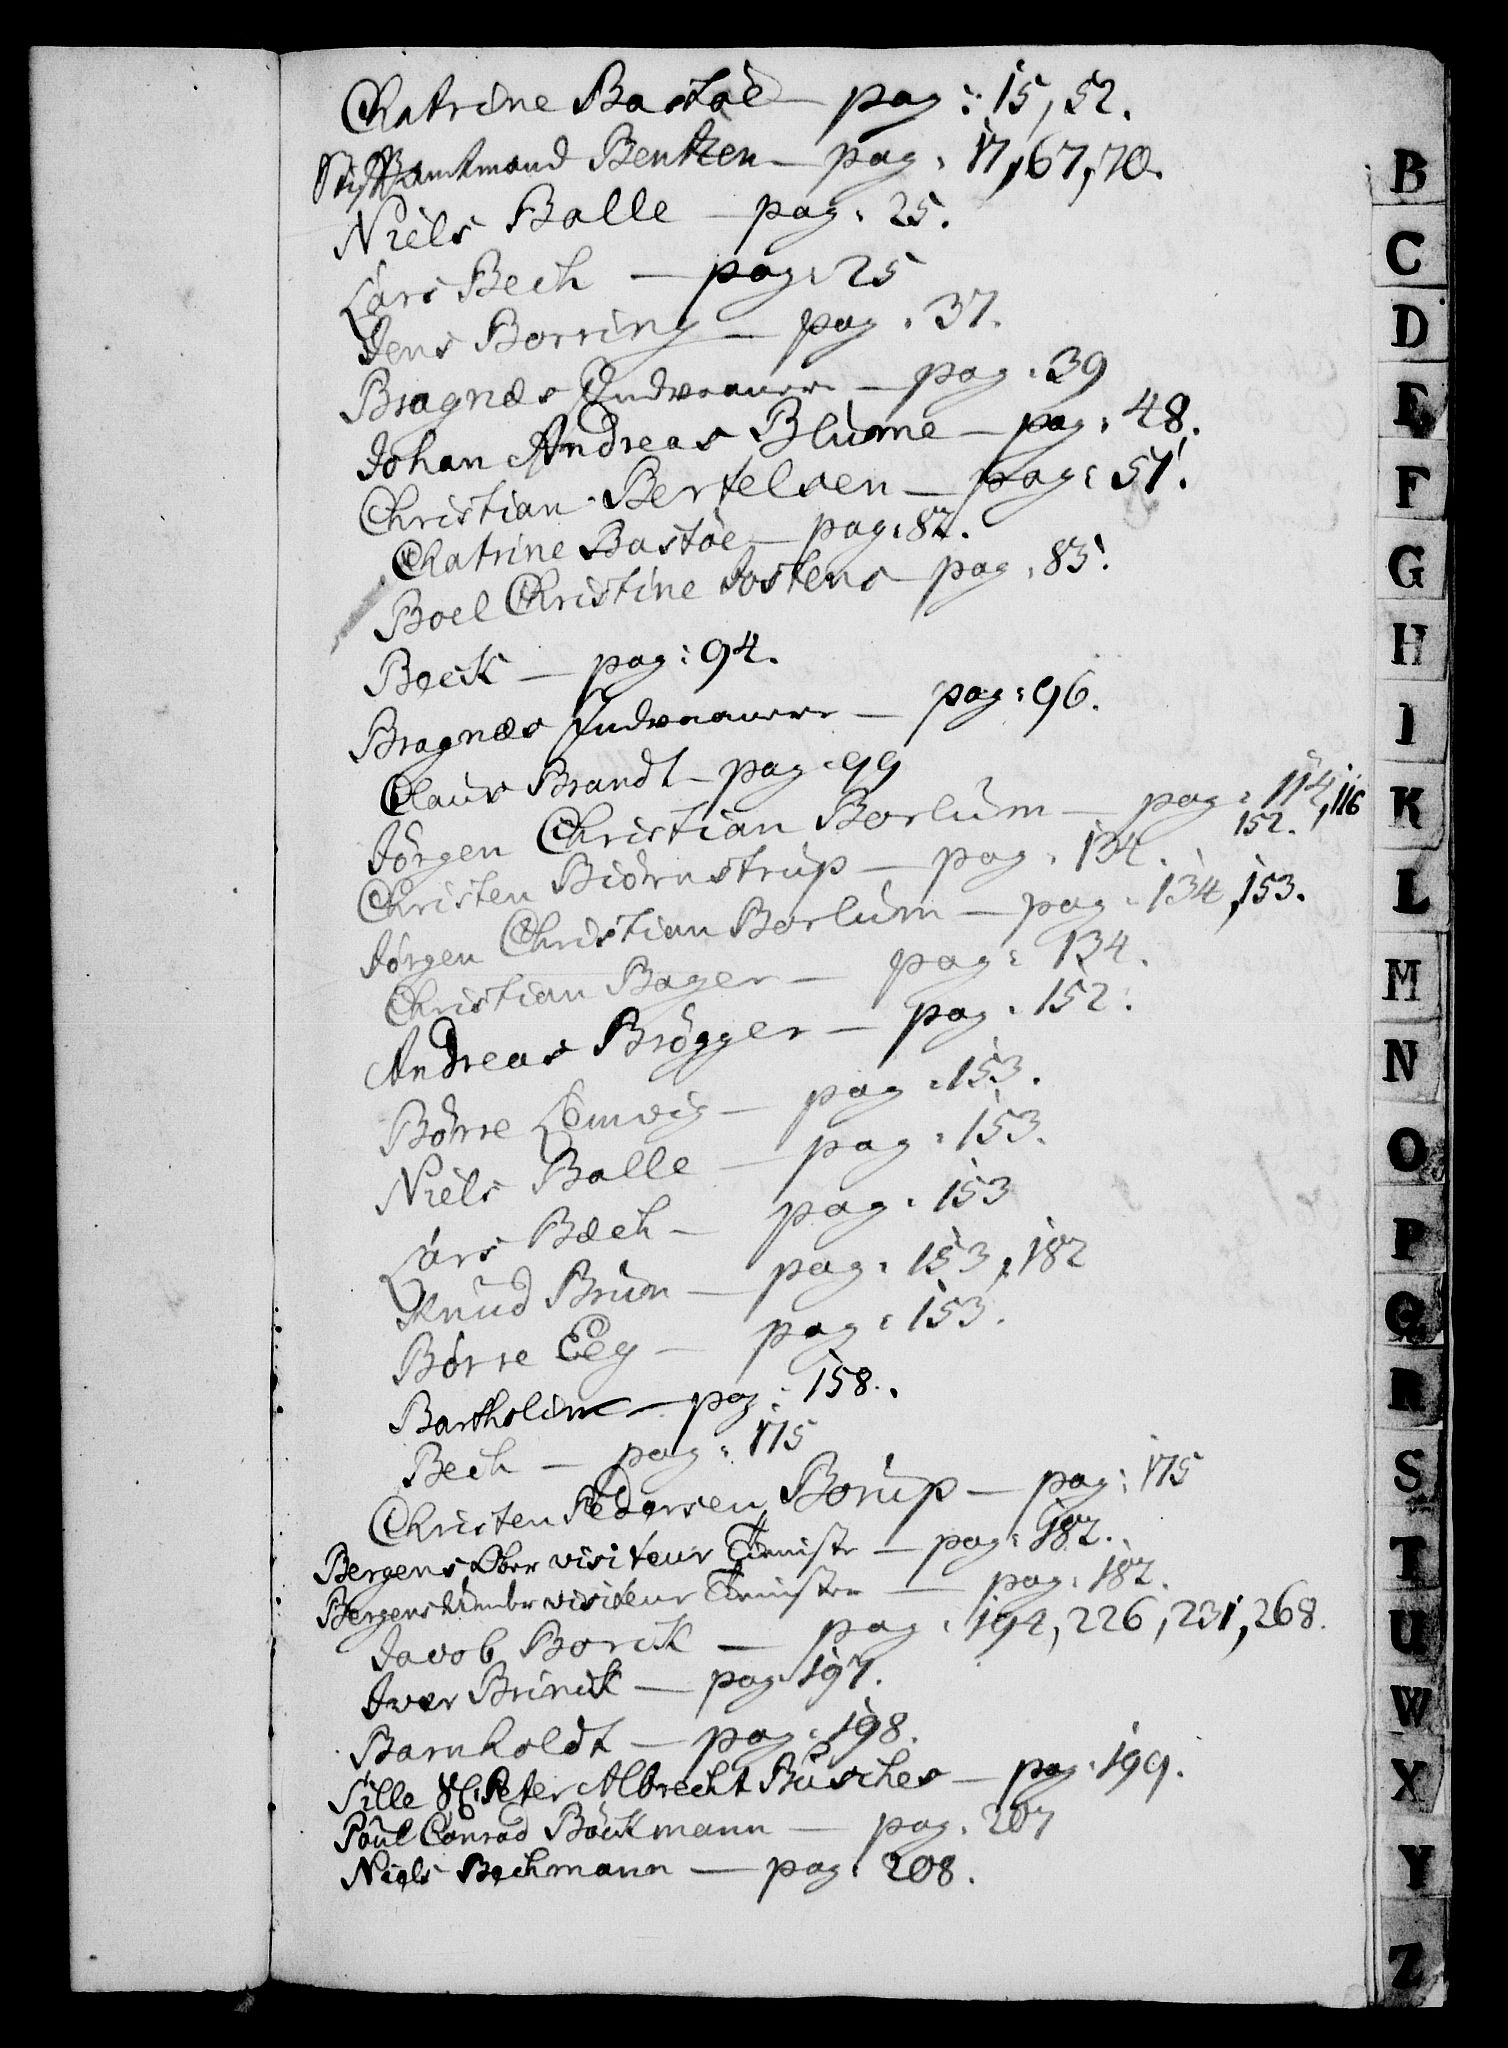 Chatrine Bastøe — pag: 15, 52.
Stiftamtmand Bentzen — pag: 17, 67, 70.
Niels Balle — pag: 25.
Lars Bech — pag: 25
Jens Borring — pag: 37.
Bragnæs Indvaanere — pag: 39
Johan Andreas Blume — pag: 48.
Christian Bertelsen — pag: 51.
Chatrine Bastøe — pag: 82.
Boel Christine Jostens — pag: 83.
Beck — pag: 94.
Bragnæs Indvaanere — pag: 96.
Claus Brandt — pag: 99
Jørgen Christian Borlum — pag: 114, 116
Christen Biørnstrup — pag: 134. 152.
Jørgen Christian Borlum — pag: 134, 153.
Christian Bager — pag: 134.
Andreas Brøgger — pag: 152.
Børre Lemvig — pag: 153.
Niels Balle — pag: 153.
Lars Bæch — pag: 153
Knud Brun — pag: 153, 182
Børre Eeg — pag: 153.
Bartholin — pag: 158.
Bech — pag: 175
Christen Pedersen Borup — pag: 175
Bergens Ober visiteur — pag: 182.
Bergens Under visiteur — pag: 182.
Jacob Borck — pag: 194, 226, 231, 268.
Iver Brinck — pag: 197.
Barnholdt — pag: 198.
Sille Sl: Peter Albrecht Busches — pag: 199.
Poul Conrad Böckmann — pag: 207
Niels Bechmann — pag: 208.
B
C
D
E
F
G
H
I
K
L
M
N
O
P
Q
R
S
T
U
W
X
Y
Z